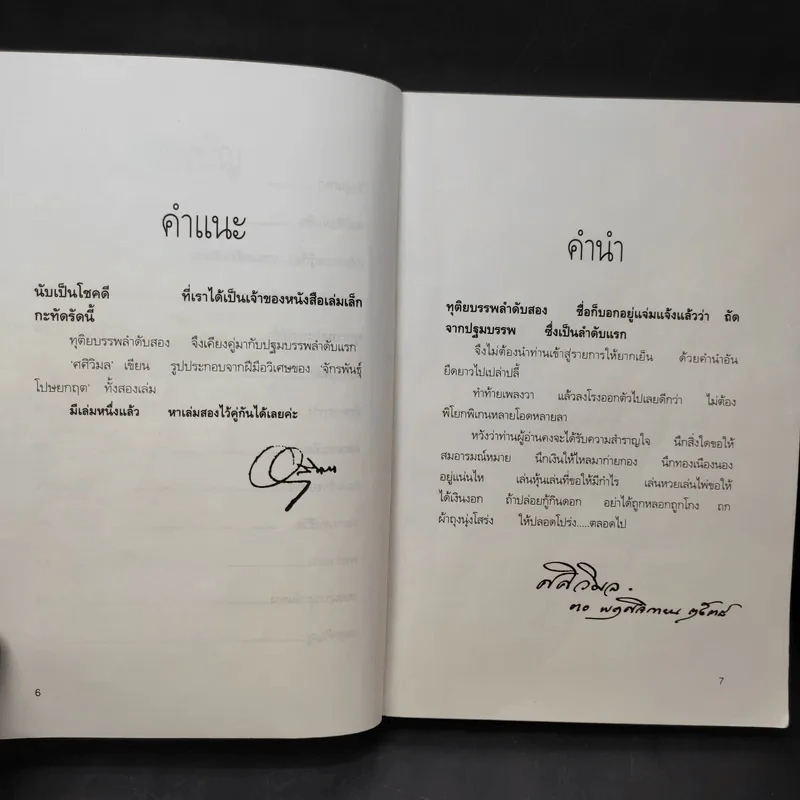 คำแนะ
นับเป็นโชคดี ที่เราได้เป็นเจ้าของหนังสือเล่มเล็ก
กะทัดรัดนี้
ทุติยบรรพลำดับสอง จึงเคียงคู่มากับปฐมบรรพลำดับแรก
'ศศิวิมล' เขียน รูปประกอบจากฝีมือวิเศษของ 'จักรพันธุ์
โปษยกฤต' ทั้งสองเล่ม
มีเล่มหนึ่งแล้ว หาเล่มสองไว้คู่กันได้เลยค่ะ
6
คำนำ
ทุติยบรรพลำดับสอง ชื่อก็บอกอยู่แจ่มแจ้งแล้วว่า ถัด
จากปฐมบรรพ ซึ่งเป็นลำดับแรก
จึงไม่ต้องนำท่านเข้าสู่รายการให้ยากเย็น ด้วยคำนำอัน
ยืดยาวไปเปล่าปลี้
ทำท้ายเพลงวา แล้วลงโรงออกตัวไปเลยดีกว่า ไม่ต้อง
พิโยกพิเกนหลายโอดหลายลา
หวังว่าท่านผู้อ่านคงจะได้รับความสำราญใจ นึกสิ่งใดขอให้
สมอารมณ์หมาย นึกเงินให้ไหลมาก่ายกอง นึกทองเนืองนอง
อยู่แน่นไห เล่นหุ้นเล่นที่ขอให้มีกำไร เล่นหวยเล่นไพ่ขอให้
ได้เงินงอก ถ้าปล่อยกู้กินดอก อย่าได้ถูกหลอกถูกโกง ถก
ผ้าถุงนุ่งโสร่ง ให้ปลอดโปร่ง.....ตลอดไป
ศศิวิมล
๓๐ พฤศจิกายน ๒๕๓๘
7